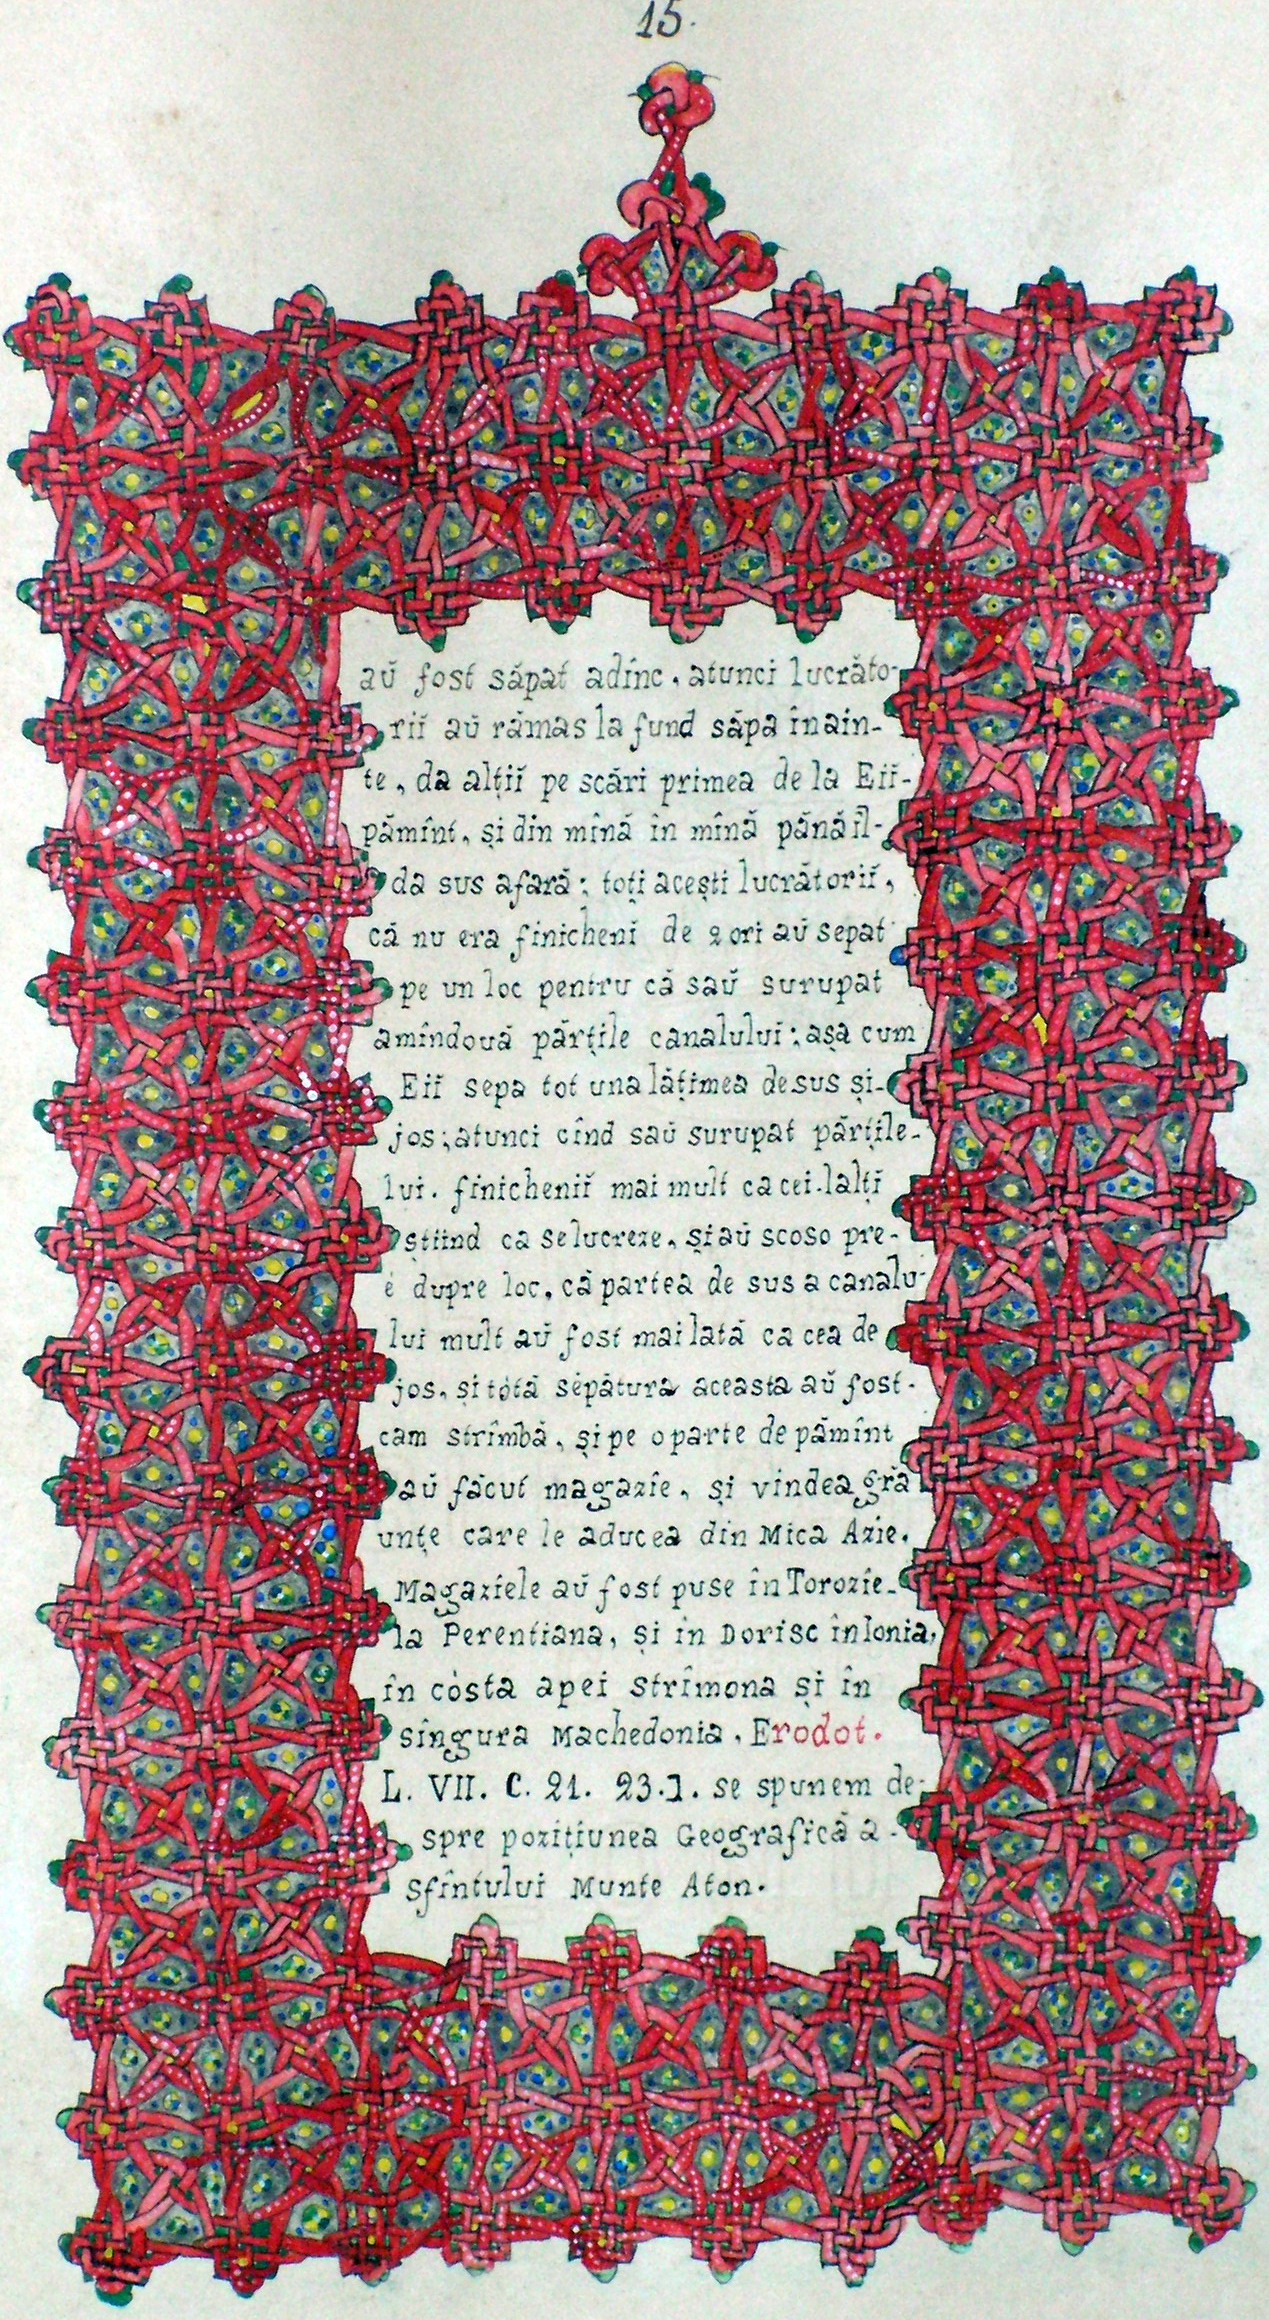 15.
aŭ fost săpat adînc, atunci lucrăto-
riĭ aŭ rămas la fund săpa înain-
te, da alțiĭ pe scări primea de la Eiĭ-
pămînt, și din mînă în mînă pănă il-
da sus afară; toți acești lucrătoriĭ,
că nu era finicheni de 2 ori aŭ sepat
pe un loc pentru că saŭ surupat
amîndouă părțile canaluluĭ; așa cum
Eiĭ sepa tot una lățimea de sus și-
jos; atunci cînd saŭ surupat părțile-
lui. finicheniĭ mai mult ca cei-lalți
știind ca se lucreze, și aŭ scoso pre-
e dupre loc, că partea de sus a canalu-
lui mult aŭ fost mai lată ca cea de
jos, și tótă sepătura aceasta aŭ fost-
cam strîmbă, și pe o parte de pămînt
aŭ făcut magazie, și vindea gră
unțe care le aducea din Mica Azie.
Magaziele aŭ fost puse în Torozie-
la Perentiana, și in Dorisc în Ionia,
în còsta apei strîmona și în
sîngura Machedonia, Erodot.
L. VII. C. 21. 23.1. se spunem de-
spre pozițiunea Geografică a-
sfîntului Munte Aton.